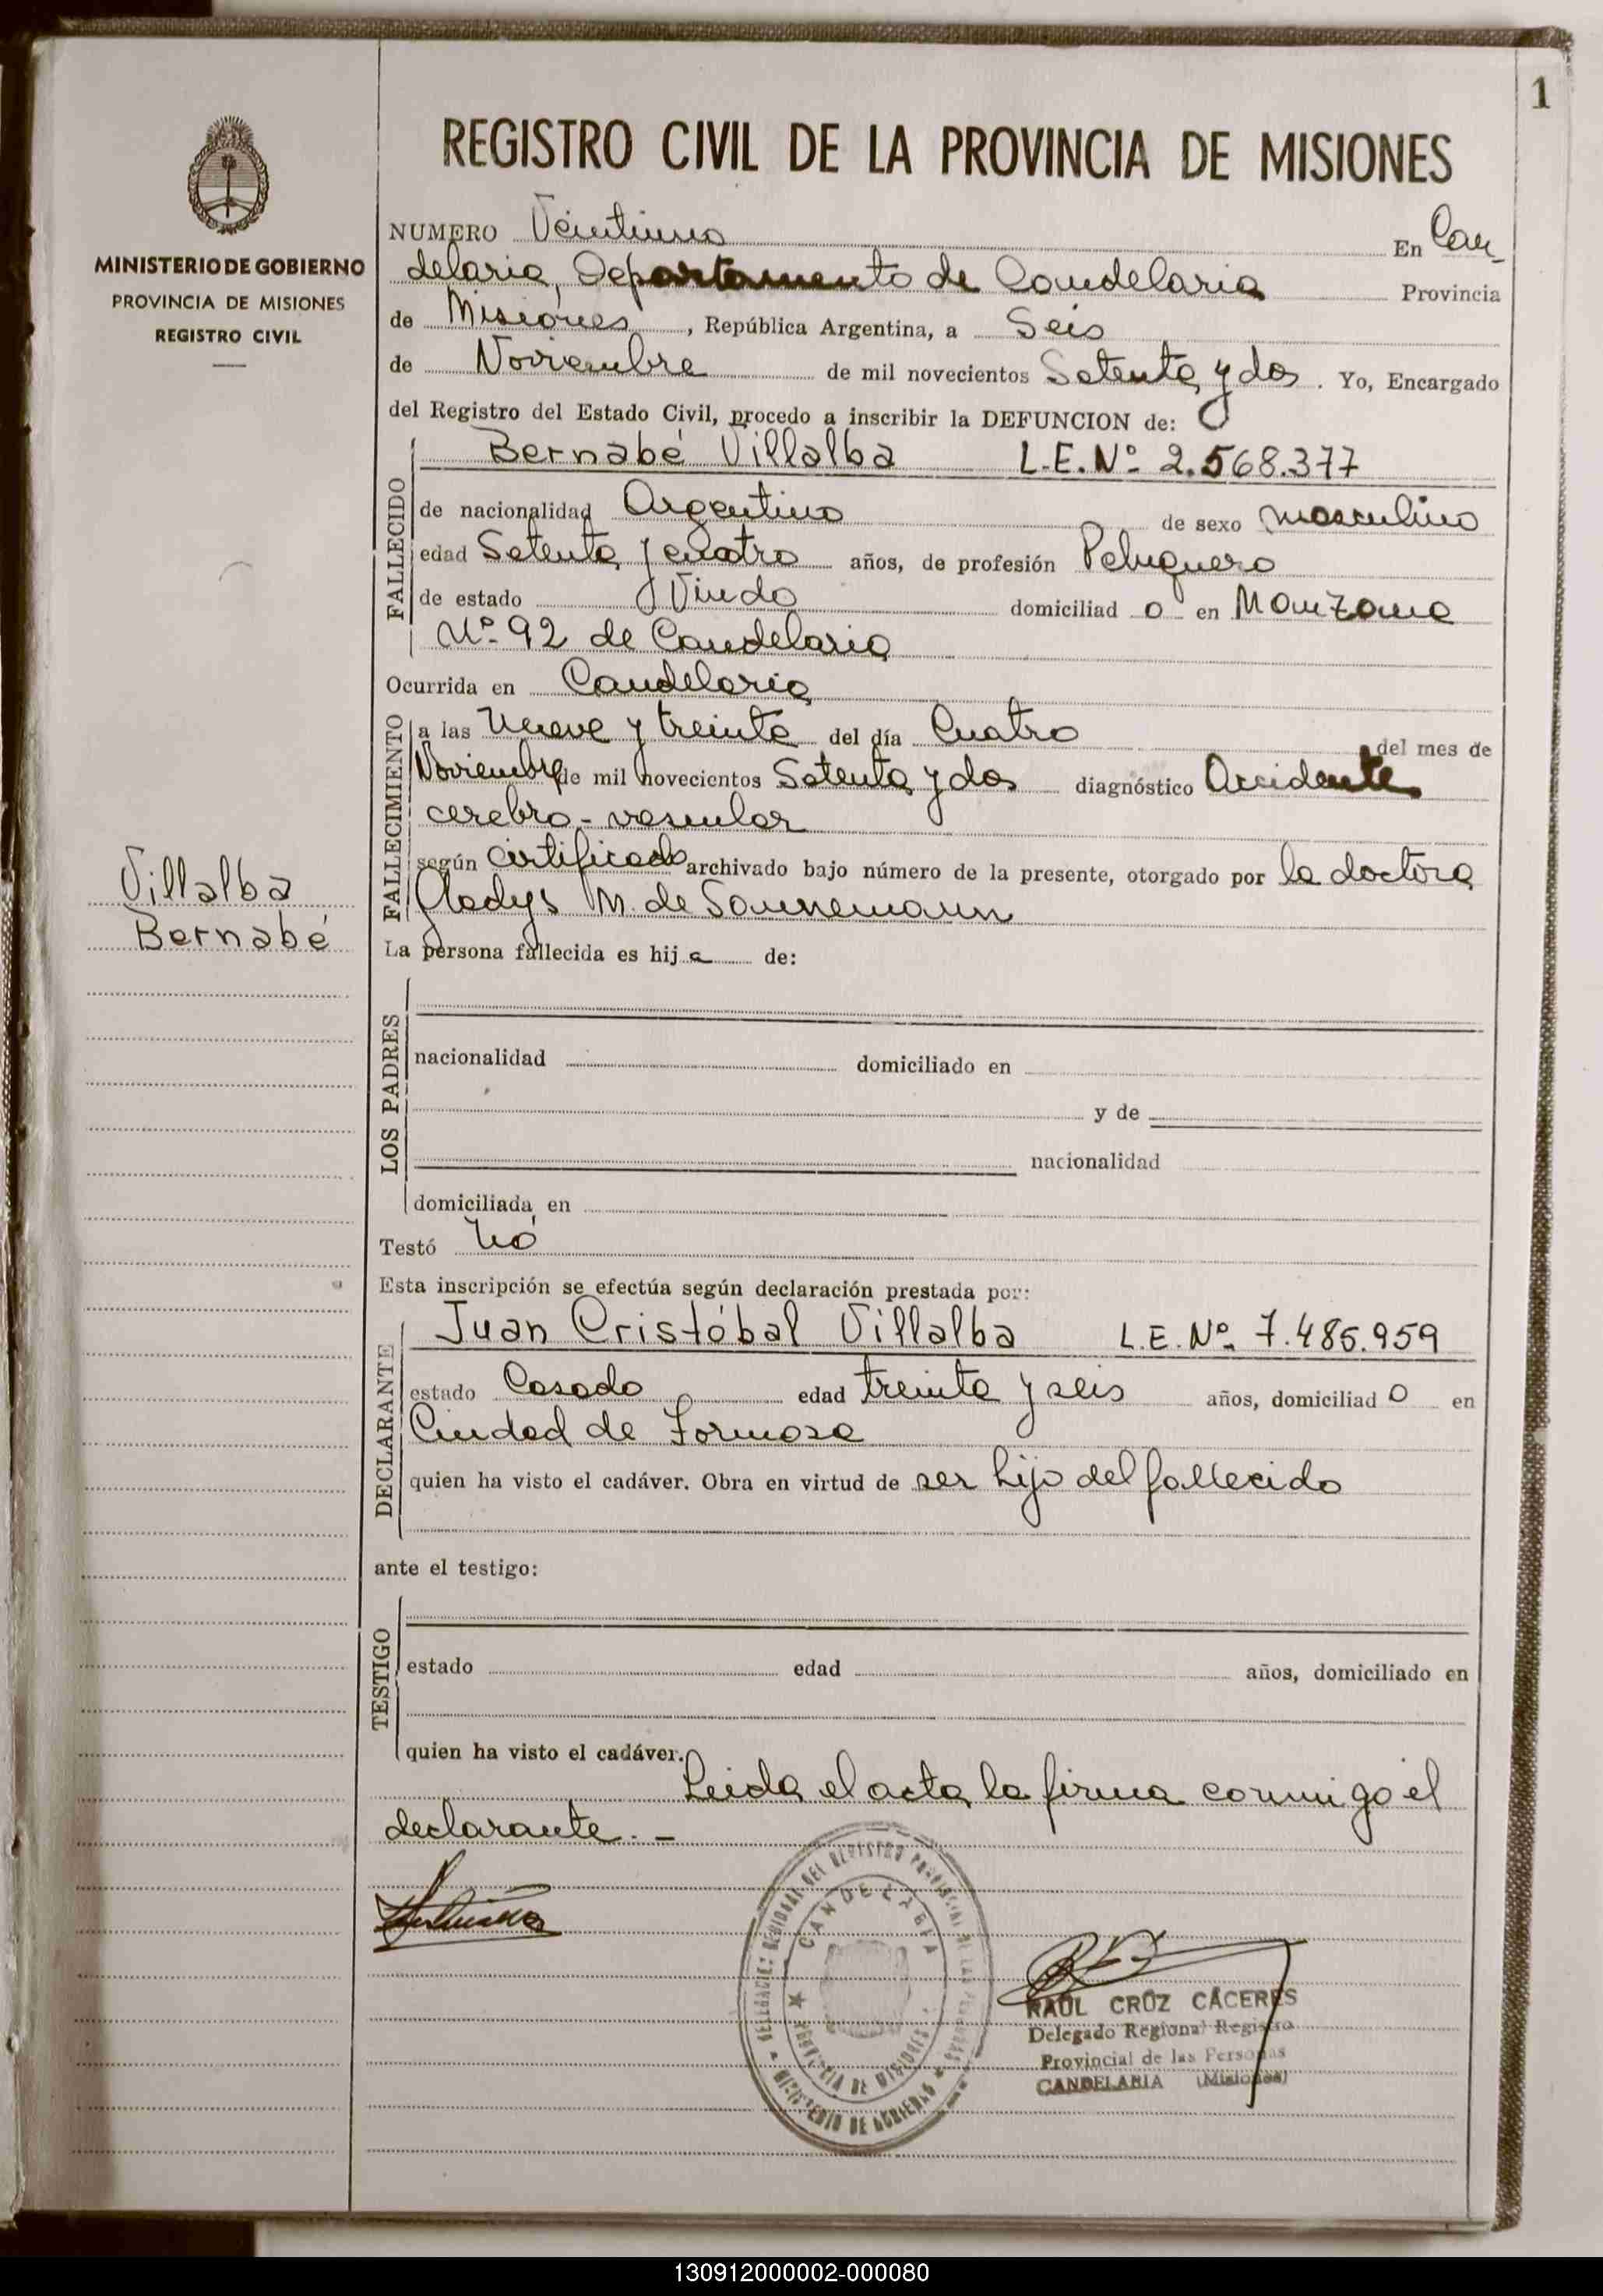 1
REGISTRO CIVIL DE LA PROVINCIA DE MISIONES
MINISTERIO DE GOBIERNO
PROVINCIA DE MISIONES
REGISTRO CIVIL
NUMERO Veintiuno En Can
delaria, Departamento de Candelaria Provincia
de Misiones, República Argentina, a Seis
de Noviembre de mil novecientos Setenta y dos. Yo, Encargado
del Registro del Estado Civil, procedo a inscribir la DEFUNCION de:
FALLECIDO
Bernabé Villalba L.E.Nº 2.568.377
de nacionalidad Argentino de sexo masculino
edad Setenta y cuatro años, de profesión Peluquero
de estado Viudo domiciliad o en Manzana
Nº 92 de Candelaria
Ocurrida en Candelaria
FALLECIMIENTO
a las Nueve y treinta del día Cuatro del mes de
Noviembre de mil novecientos Setenta y dos diagnóstico Accidente
cerebro-vascular
según certificado archivado bajo número de la presente, otorgado por la doctora
Gladys M. de Sonnemann
Villalba
Bernabé
La persona fallecida es hij a de:
LOS PADRES
nacionalidad domiciliado en
y de
nacionalidad
domiciliada en
Testó nó
Esta inscripción se efectúa según declaración prestada por:
DECLARANTE
Juan Cristóbal Villalba L.E.Nº 7.485.959
estado Casado edad treinta y seis años, domiciliad o en
Ciudad de Formosa
quien ha visto el cadáver. Obra en virtud de ser hijo del fallecido
ante el testigo:
TESTIGO
estado edad años, domiciliado en
quien ha visto el cadáver.
Leida el acta, la firma conmigo el
declarante.-
CANDELARIA
PROVINCIA DE MISIONES
MINISTERIO DE GOBIERNO
RAUL CRUZ CACERES
Delegado Regional Registro
Provincial de las Personas
CANDELARIA (Misiones)
130912000002-000080